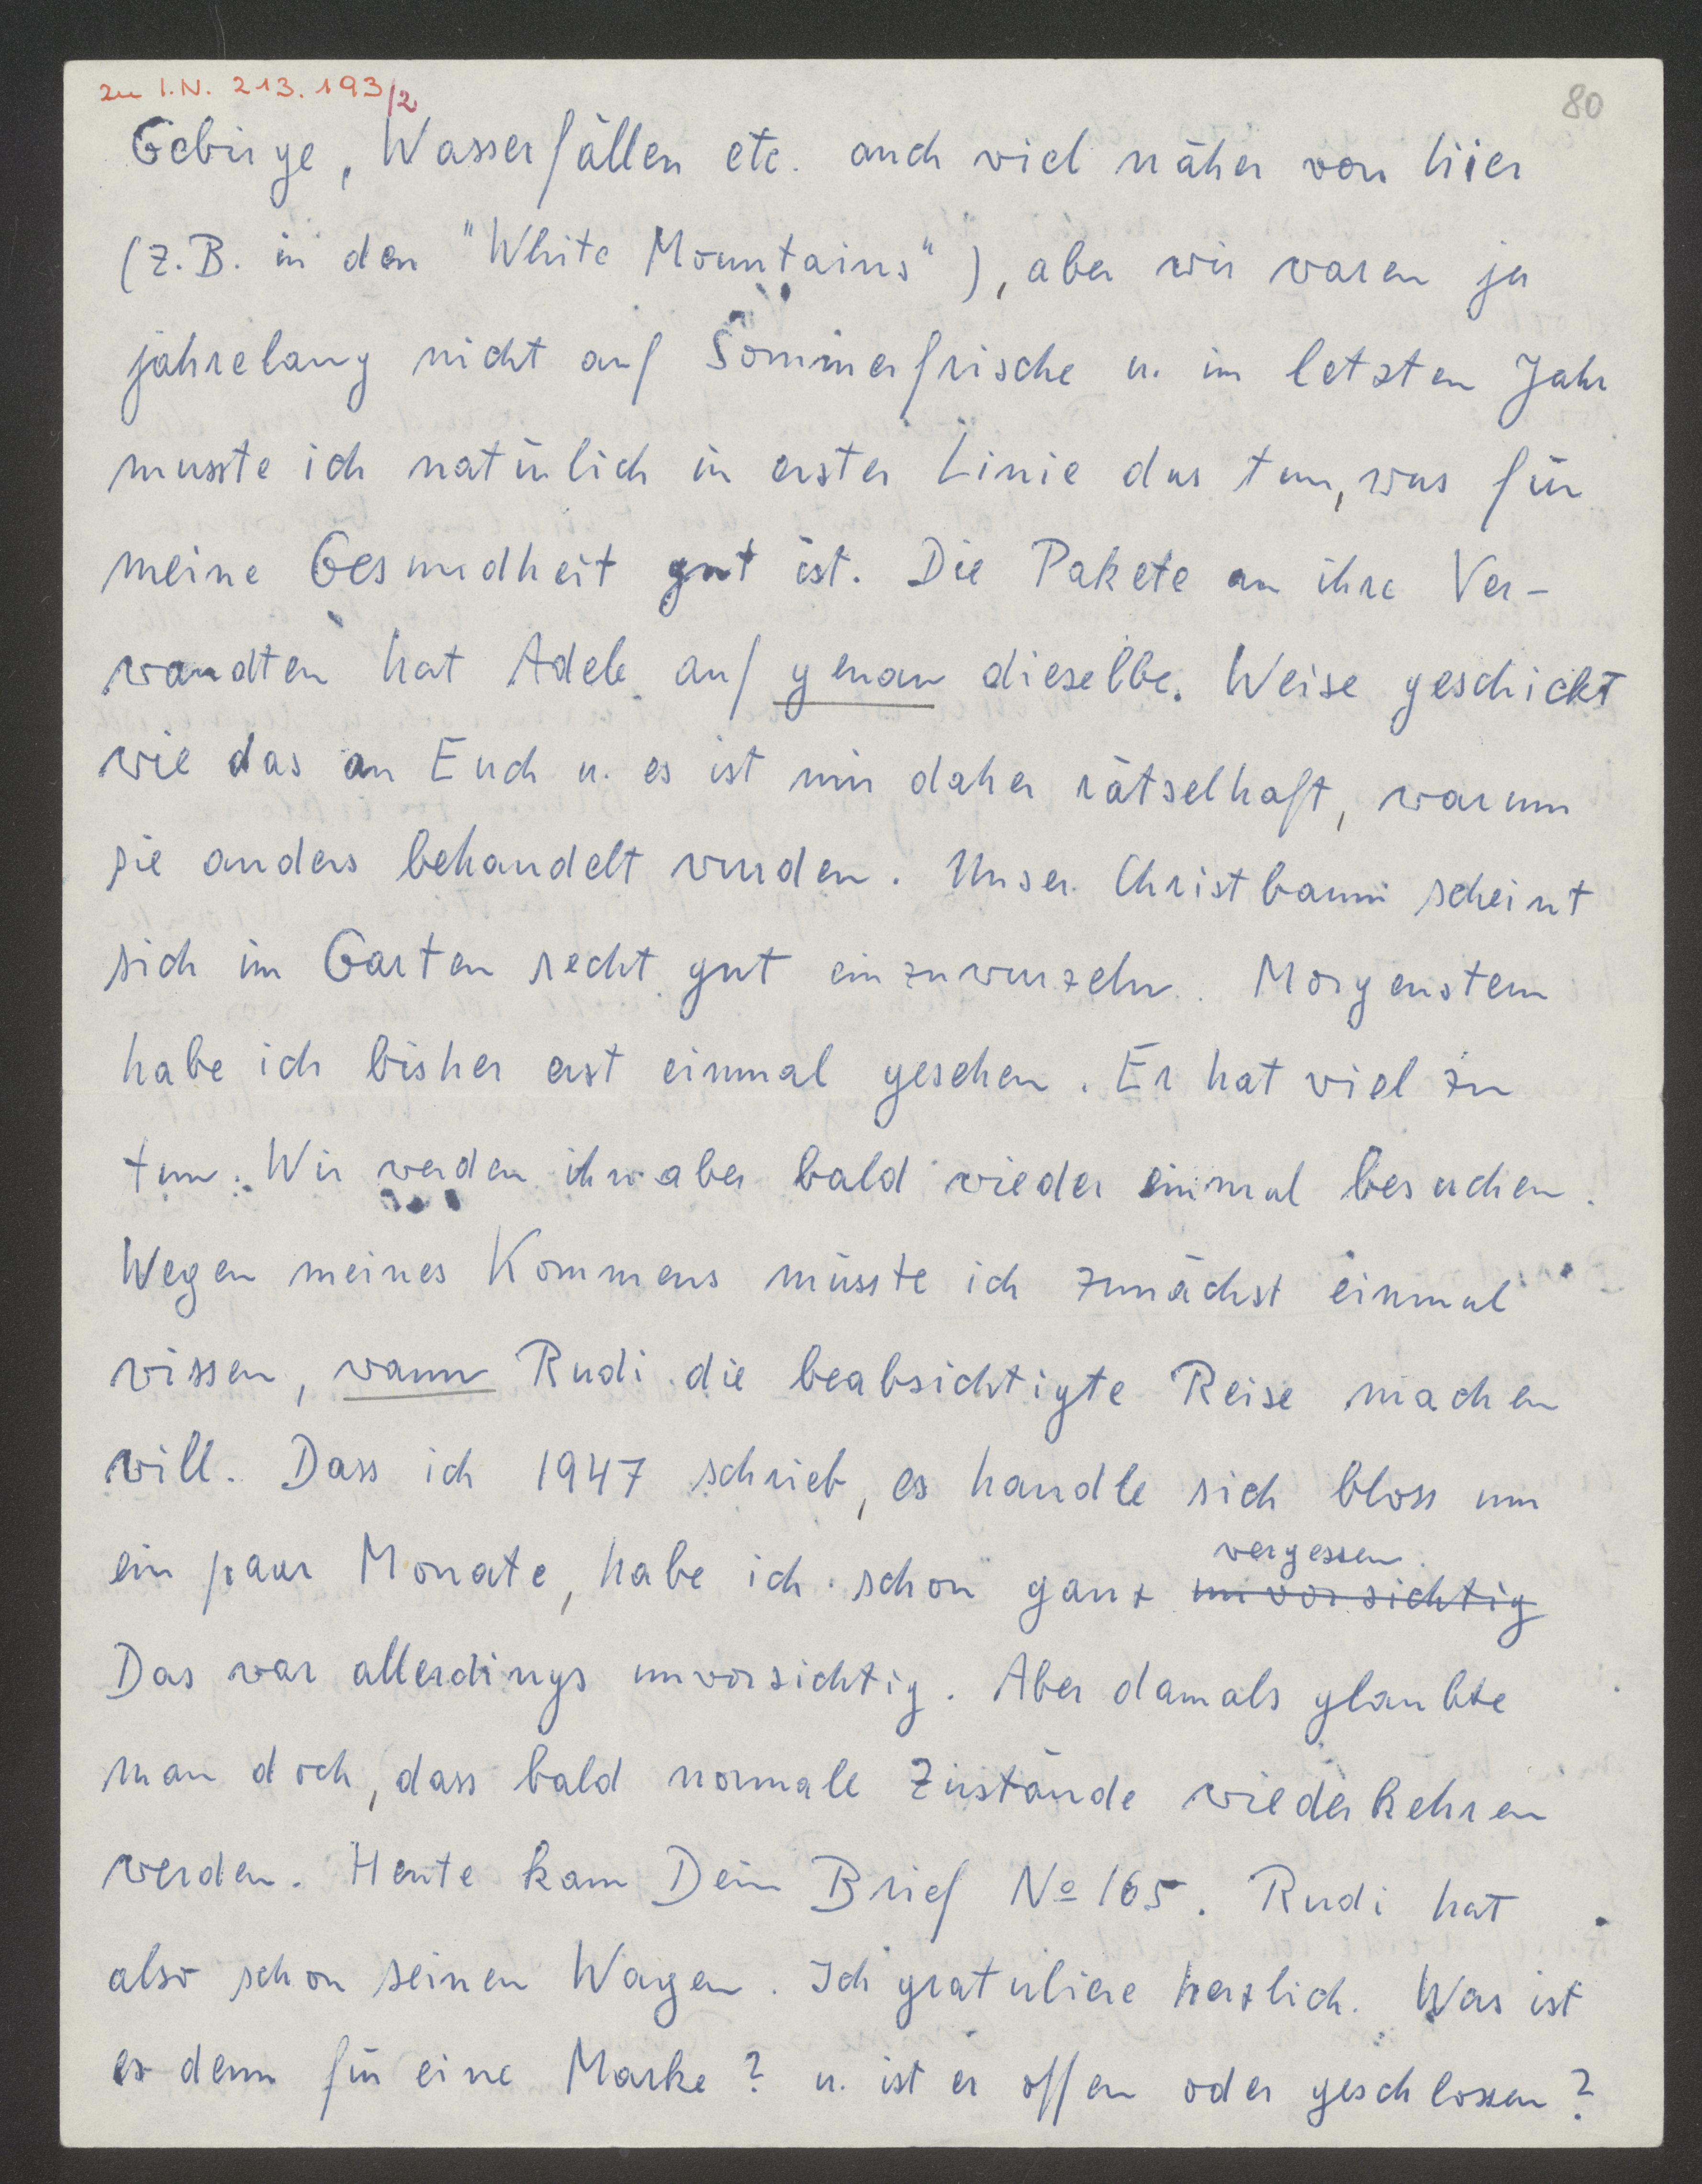 zu I.N. 213.193/2
80
Gebirge, Wasserfällen etc. auch viel näher von hier
(z.B. in den "White Mountains"), aber wir waren ja
jahrelang nicht auf Sommerfrische u. im letzten Jahr
musste ich natürlich in erster Linie das tun, was für
meine Gesundheit gut ist. Die Pakete an ihre Ver-
wandten hat Adele auf genau dieselbe Weise geschickt
wie das an Euch u. es ist mir daher rätselhaft, warum
sie anders behandelt wurden. Unser Christbaum scheint
sich im Garten recht gut einzuwurzeln. Morgenstern
habe ich bisher erst einmal gesehen. Er hat viel zu
tun. Wir werden ihn aber bald wieder einmal besuchen.
Wegen meines Kommens müsste ich zunächst einmal
wissen, wann Rudi die beabsichtigte Reise machen
will. Dass ich 1947 schrieb, es handle sich bloss um
ein paar Monate, habe ich schon ganz unvorsichtig vergessen.
Das war allerdings unvorsichtig. Aber damals glaubte
man doch, dass bald normale Zustände wiederkehren
werden. Heute kam Dein Brief No 165. Rudi hat
also schon seinen Wagen. Ich gratuliere herzlich. Was ist
es denn für eine Marke? u. ist er offen oder geschlossen?